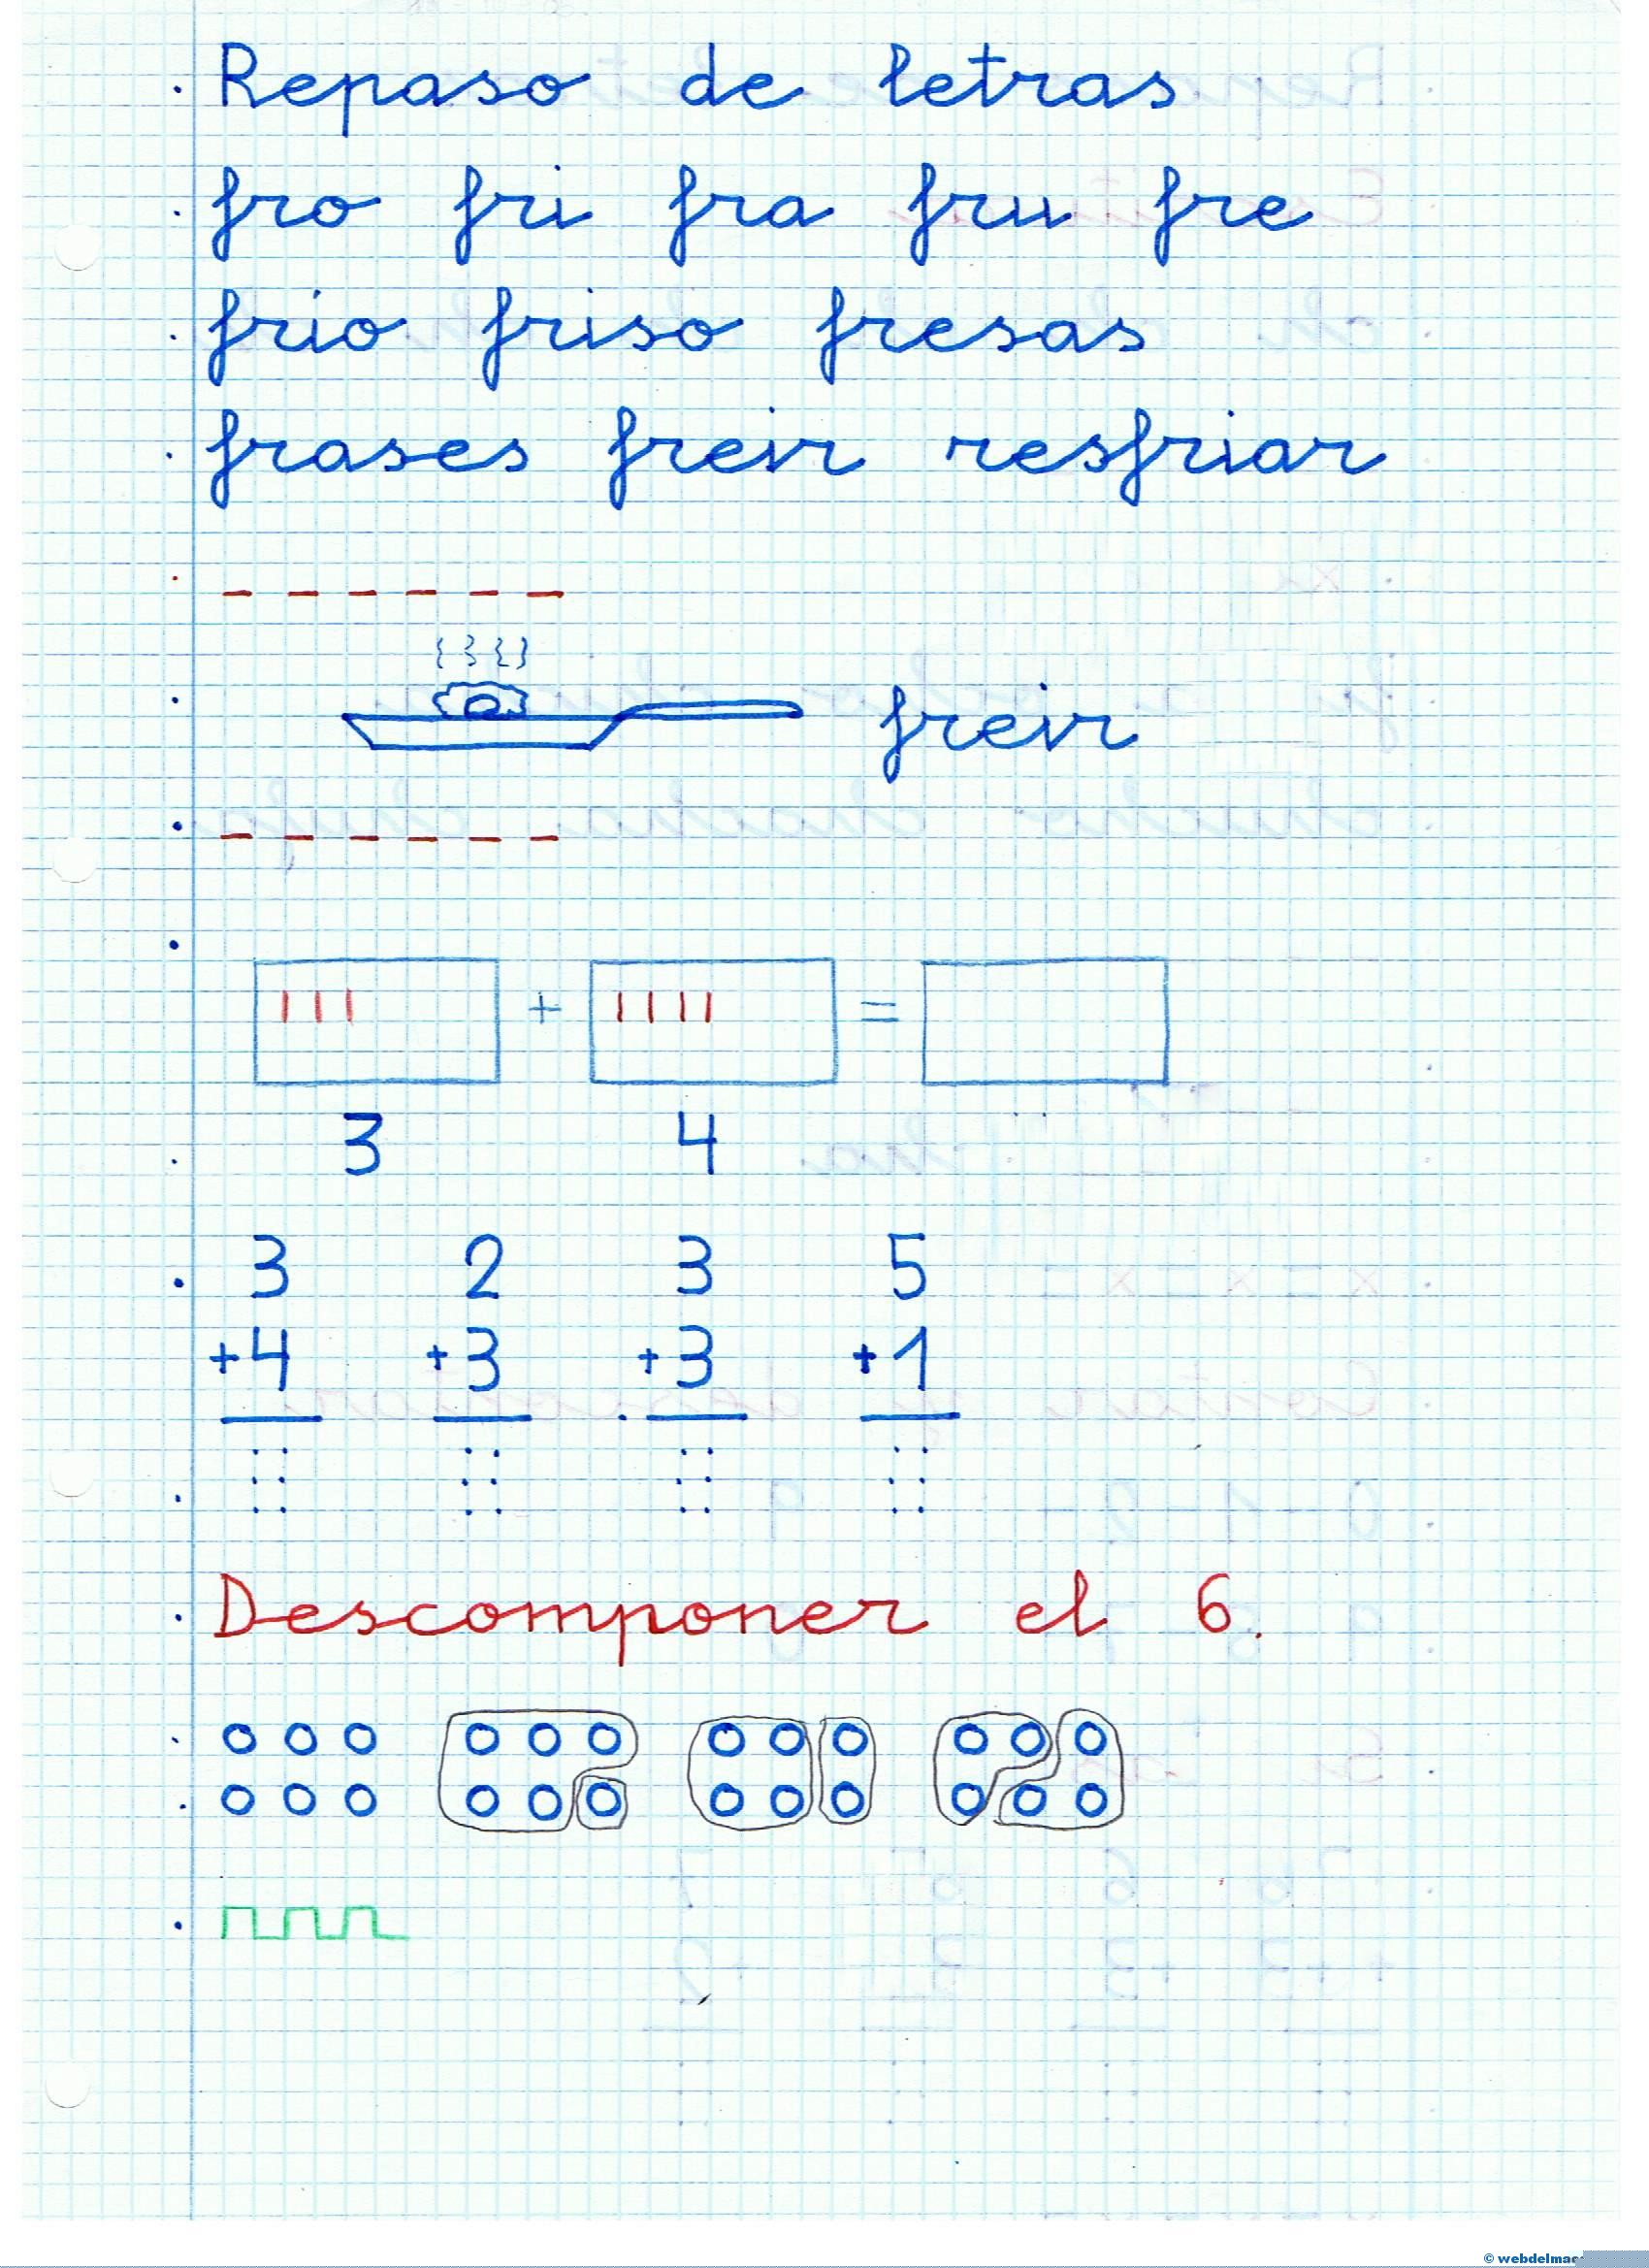 Repaso de letras
fro fri fra fru fre
frio friso fresas
frases freir resfriar
freir
+ =
3 4
3 2 3 5
+4 +3 +3 +1
Descomponer el 6.